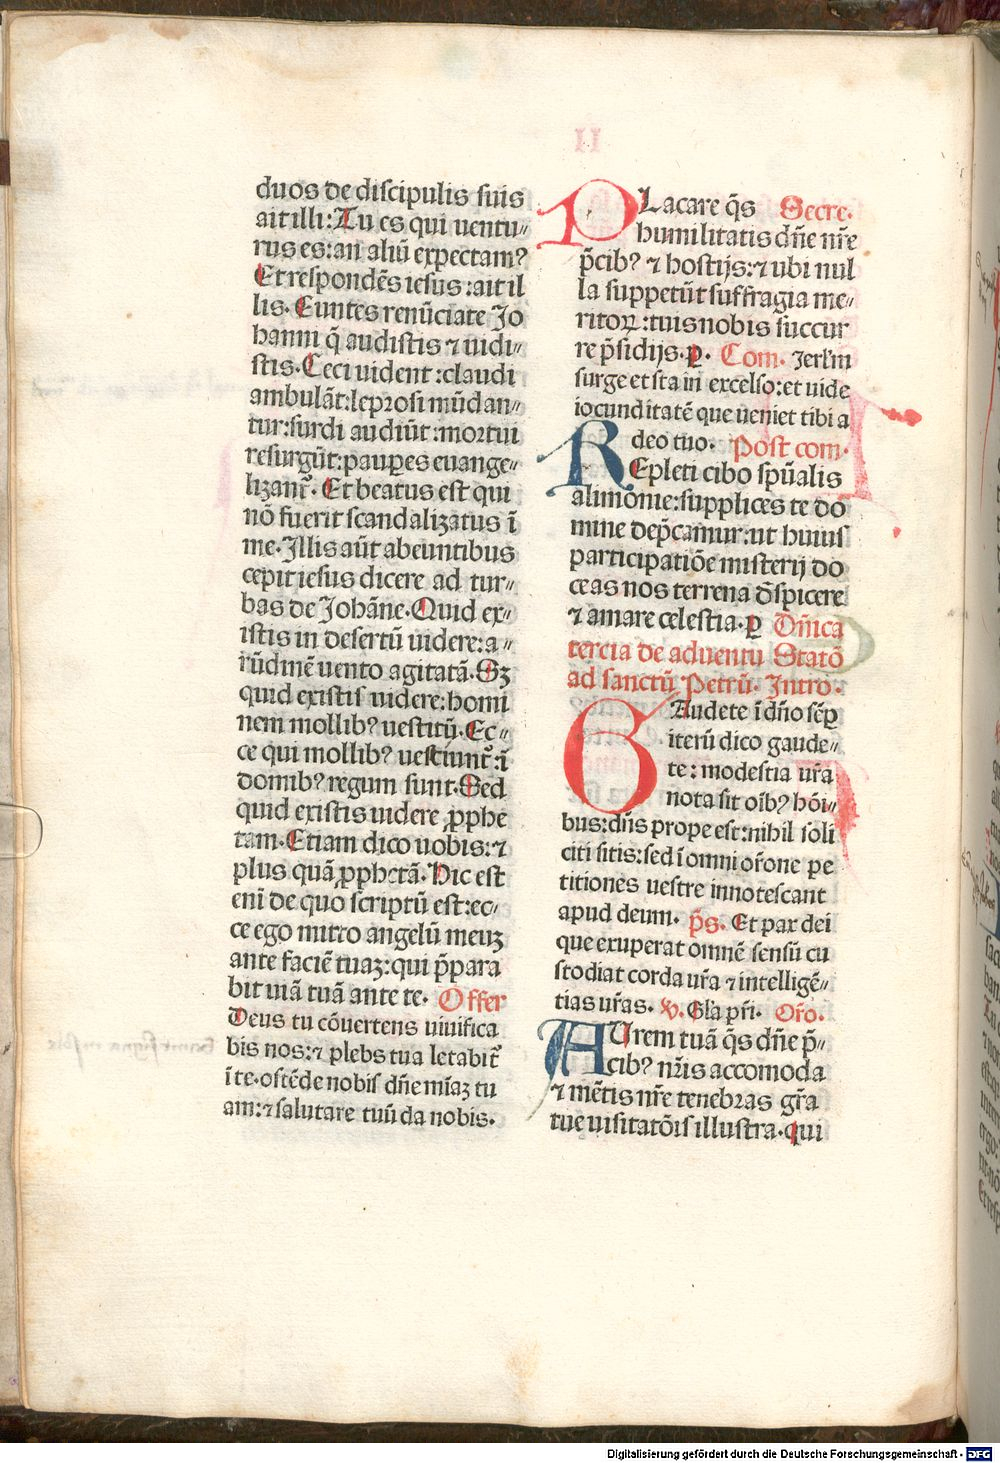 duos de discipulis suis
ait illi: Tu es qui ventu⸗
rus es: an aliū expectam?
Et respondēs iesus: ait il
lis. Euntes renūciate Jo
hanni q̄ audistis ⁊ uidi⸗
stis. Ceci uident: claudi
ambulāt: leprosi mūdan⸗
tur: surdi audiūt: mortui
resurgūt: pauꝑes euange⸗
lizant᷑. Et beatus est qui
nō fuerit scandalizatus ī
me. Illis aūt abeuntibus
cepit iesus dicere ad tur⸗
bas de Johāne. Quid ex⸗
istis in desertū uidere: a⸗
rūdinē uento agitatā. Sꝫ
quid existis uidere: homi
nem mollibꝰ uestitū. Ec⸗
ce qui mollibꝰ uestiunt᷑: ī
domibꝰ regum sunt. Sed
quid existis uidere ꝓphe
tam. Etiam dico uobis: ⁊
plus quā ꝓphetā. Hic est
enī de quo scriptū est: ec⸗
ce ego mitto angelū meuꝫ
ante faciē tuaꝫ: qui p̄para
bit uiā tuā ante te. Offer
Deus tu cōuertens uiuifica
bis nos: ⁊ plebs tua letabit᷑
ī te. ostēde nobis dn̄e mīaꝫ tu
am: ⁊ salutare tuū da nobis.
II
PLacare q̄s Secre.
humilitatis dn̄e nr̄e
p̄cibꝰ ⁊ hostijs: ⁊ ubi nul
la suppetūt suffragia me⸗
ritoꝝ: tuis nobis succur
re p̄sidijs. ꝑ. Com. Jerl̄m
surge et sta in excelso: et uide
iocunditatē que ueniet tibi a
deo tuo. Post com.
REpleti cibo spūalis
alimōnie: supplices te do
mine dep̄camur: ut huius
participatiōe misterij do
ceas nos terrena d̄spicere
⁊ amare celestia. ꝑ Dn̄ica
tercia de aduentu Statō
ad sanctū Petrū. Intro.
GAudete ī dn̄o sēꝑ
iterū dico gaude⸗
te: modestia ur̄a
nota sit oībꝰ hōi⸗
bus: dn̄s prope est: nihil soli
citi sitis: sed ī omni or̄one pe
titiones uestre innotescant
apud deum. p̄s. Et pax dei
que exuperat omnē sensū cu
stodiat corda ur̄a ⁊ intelligē⸗
tias ur̄as. ℣. Gl̄a pr̄i. Or̄o.
AUrem tuā q̄s dn̄e p̄⸗
cibꝰ nr̄is accomoda
⁊ mētis nr̄e tenebras gr̄a
tue uisitatōis illustra. qui
Digitalisierung gefördert durch die Deutsche Forschungsgemeinschaft - DFG